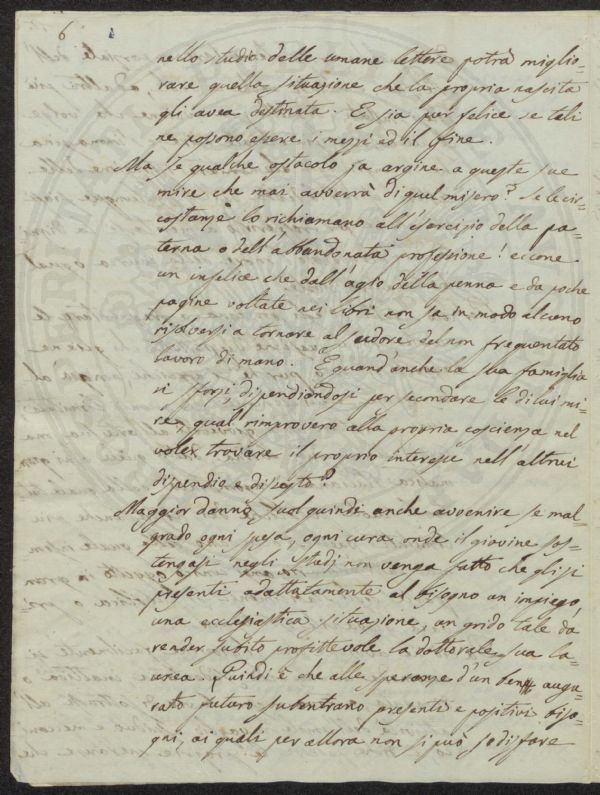 6
nello studio delle umane lettere potrà miglio-
rare quella situazione che la propria nascita
gli avea destinata. E sia pur felice se tali
ne possono essere i mezzi ed il fine.
Ma se qualche ostacolo fa argine a queste sue
mire che mai avverrà di quel misero? Se le cir-
costanze lo richiamano all'esercizio della pa-
terna o dell'abbandonata professione! eccone
un infelice che dall'agio della penna e da poche
pagine voltate nei libri non sa in modo alcuno
risolversi a tornare al sudore del non frequentato
lavoro di mano. E quand'anche la sua famiglia
si sforzi, dispendiandosi per secondare le di lui mi-
re, qual rimprovero alla propria coscienza nel
voler trovare il proprio interesse nell'altrui
dispendio e dissesto?
Maggior danno suol quindi anche avvenire se mal-
grado ogni spesa, ogni cura, onde il giovine sos-
tengasi negli studj non venga fatto che gli si
presenti adattatamente al bisogno un impiego,
una ecclesiastica situazione, un grido tale da
render subito profittevole la dottorale sua la-
urea. Quindi è che alle speranze d'un ben augu-
rato futuro subentrano presenti e positivi biso-
gni, ai quali per allora non si può sodisfare